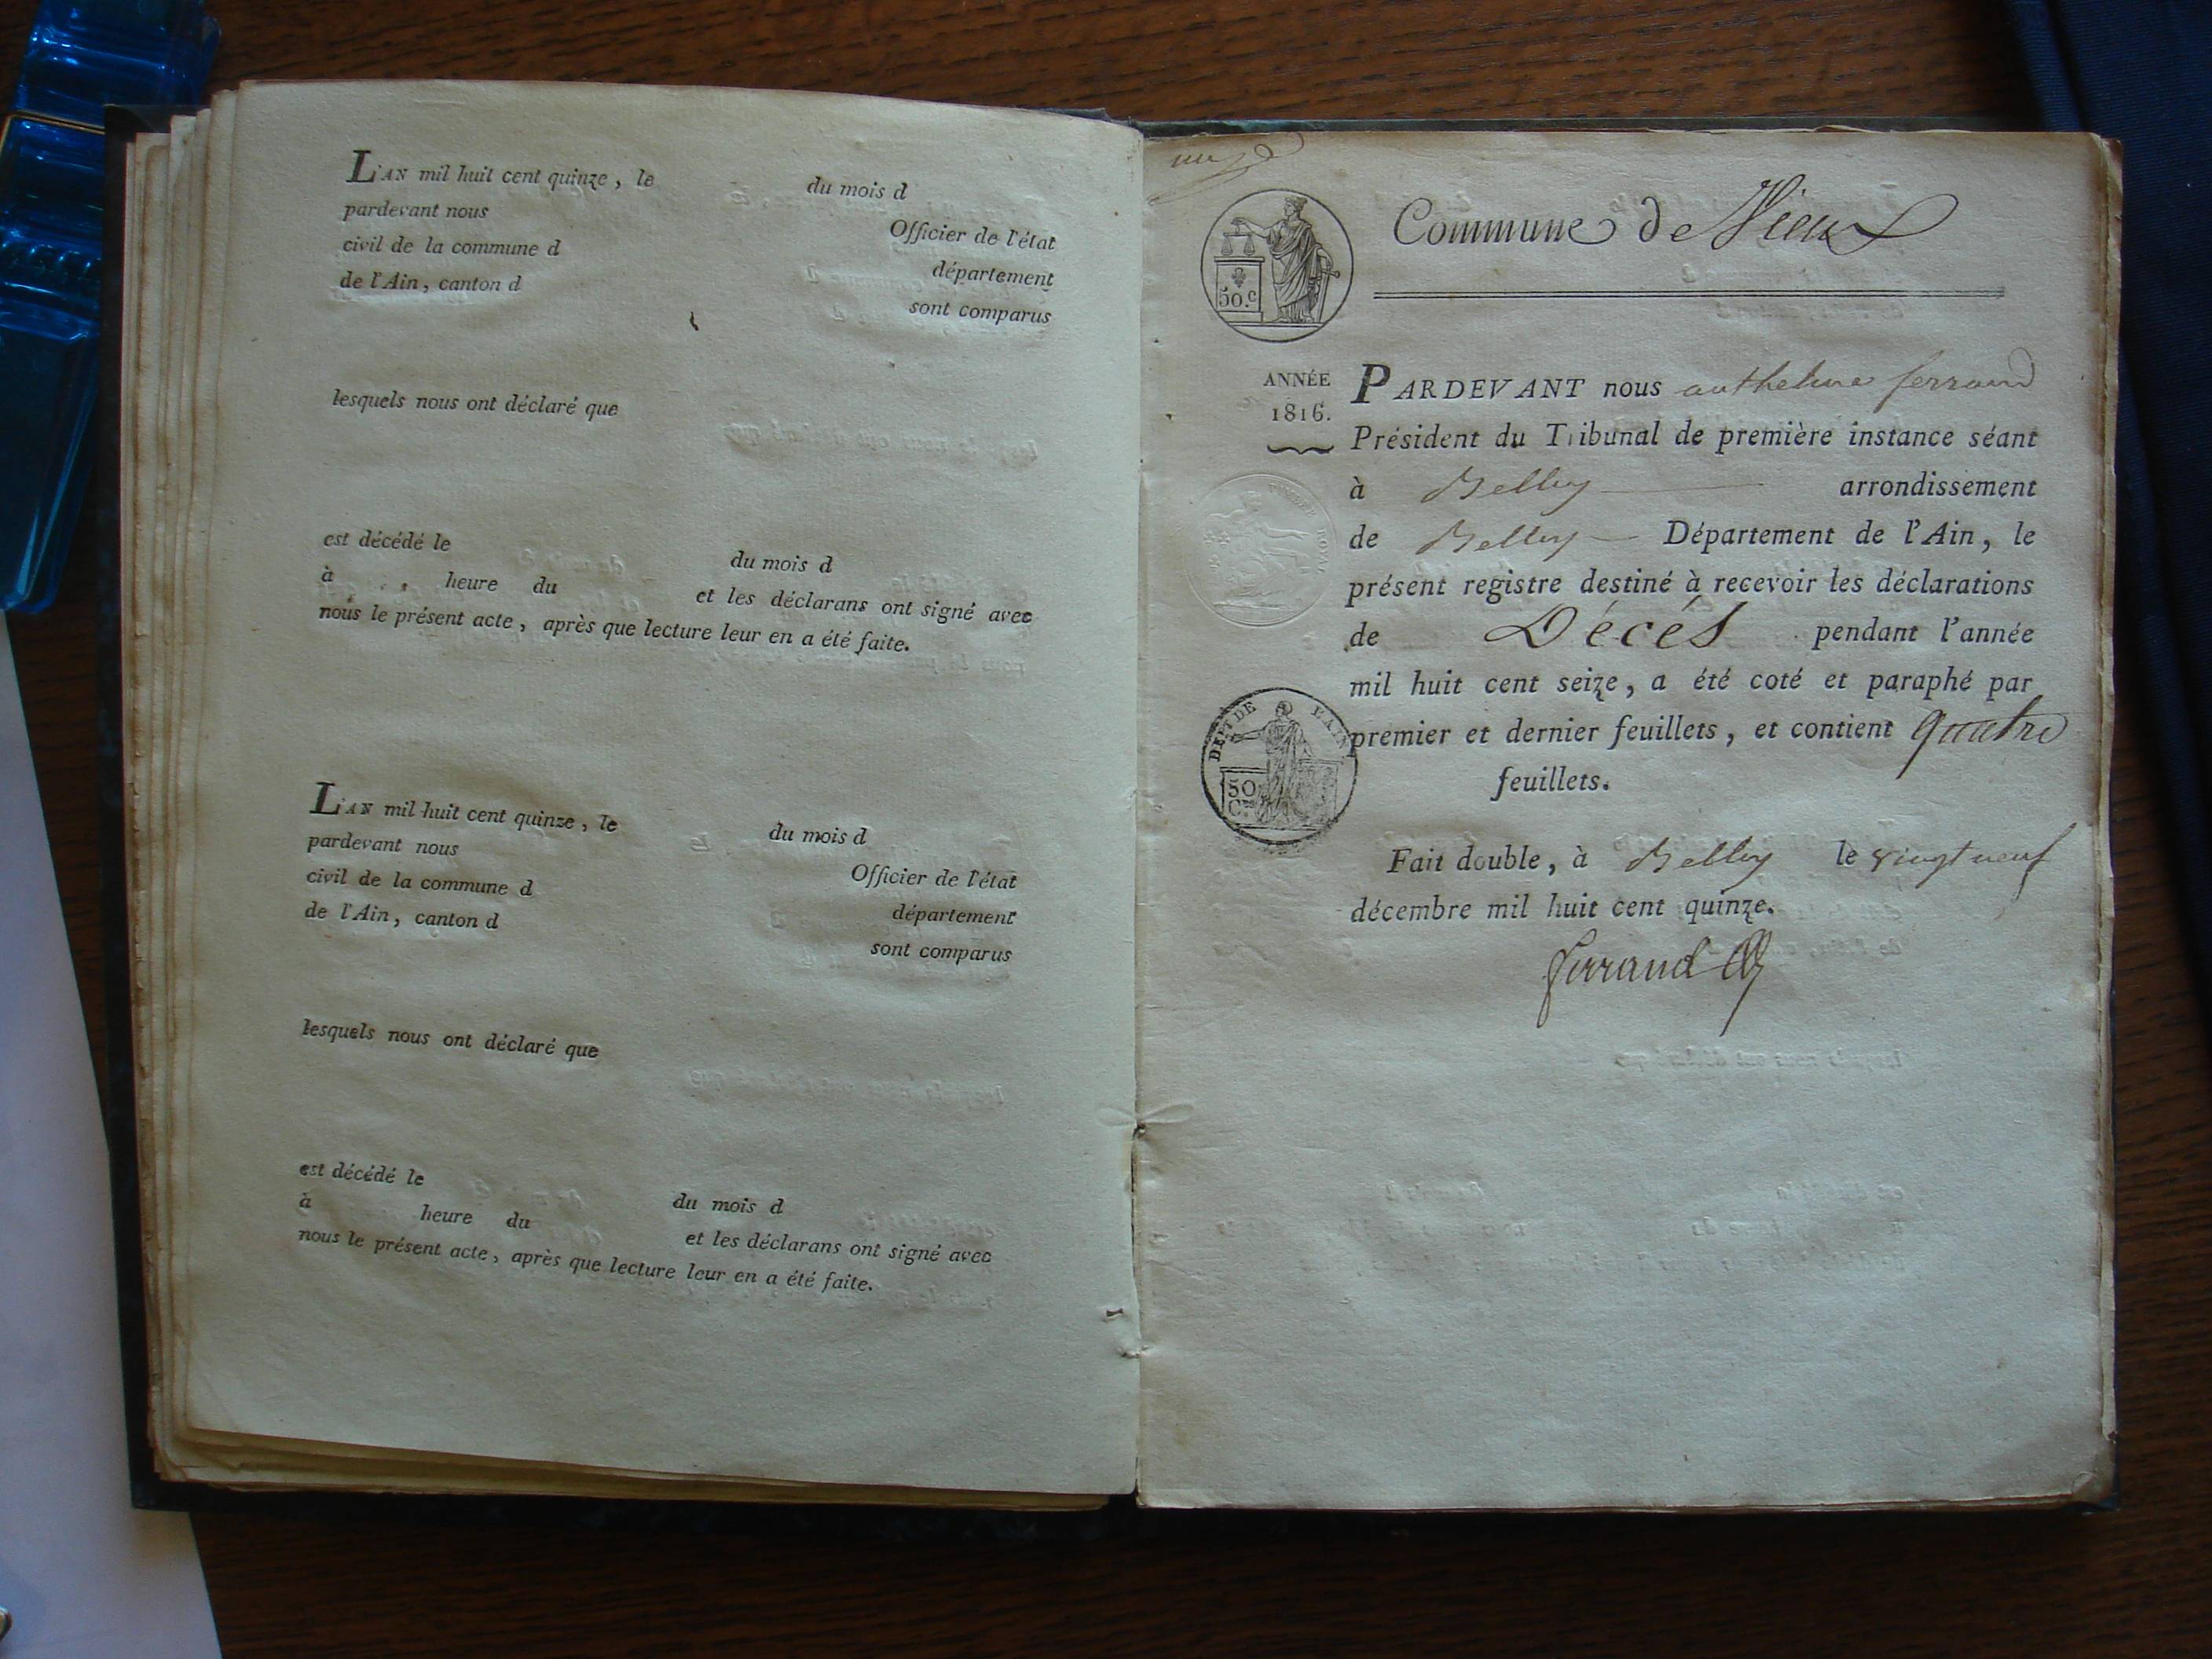 L'AN mil huit cent quinze, le du mois d
pardevant nous Officier de l'état
civil de la commune d département
de l'Ain, canton d sont comparus
lesquels nous ont déclaré que
est décédé le du mois d
à heure du et les déclarans ont signé avec
nous le présent acte, après que lecture leur en a été faite.
L'AN mil huit cent quinze, le du mois d
pardevant nous Officier de l'état
civil de la commune d département
de l'Ain, canton d sont comparus
lesquels nous ont déclaré que
est décédé le du mois d
à heure du et les déclarans ont signé avec
nous le présent acte, après que lecture leur en a été faite.
Commune de Vieux
50.c
ANNÉE
1816.
PARDEVANT nous anthelme ferrand
Président du Tribunal de première instance séant
à Belley arrondissement
de Belley Département de l'Ain, le
présent registre destiné à recevoir les déclarations
de Décés pendant l'année
mil huit cent seize, a été coté et paraphé par
premier et dernier feuillets, et contient quatre
feuillets.
DEPT DE L'AIN
50
Ces
Fait double, à Belley le vingt neuf
décembre mil huit cent quinze.
ferrand